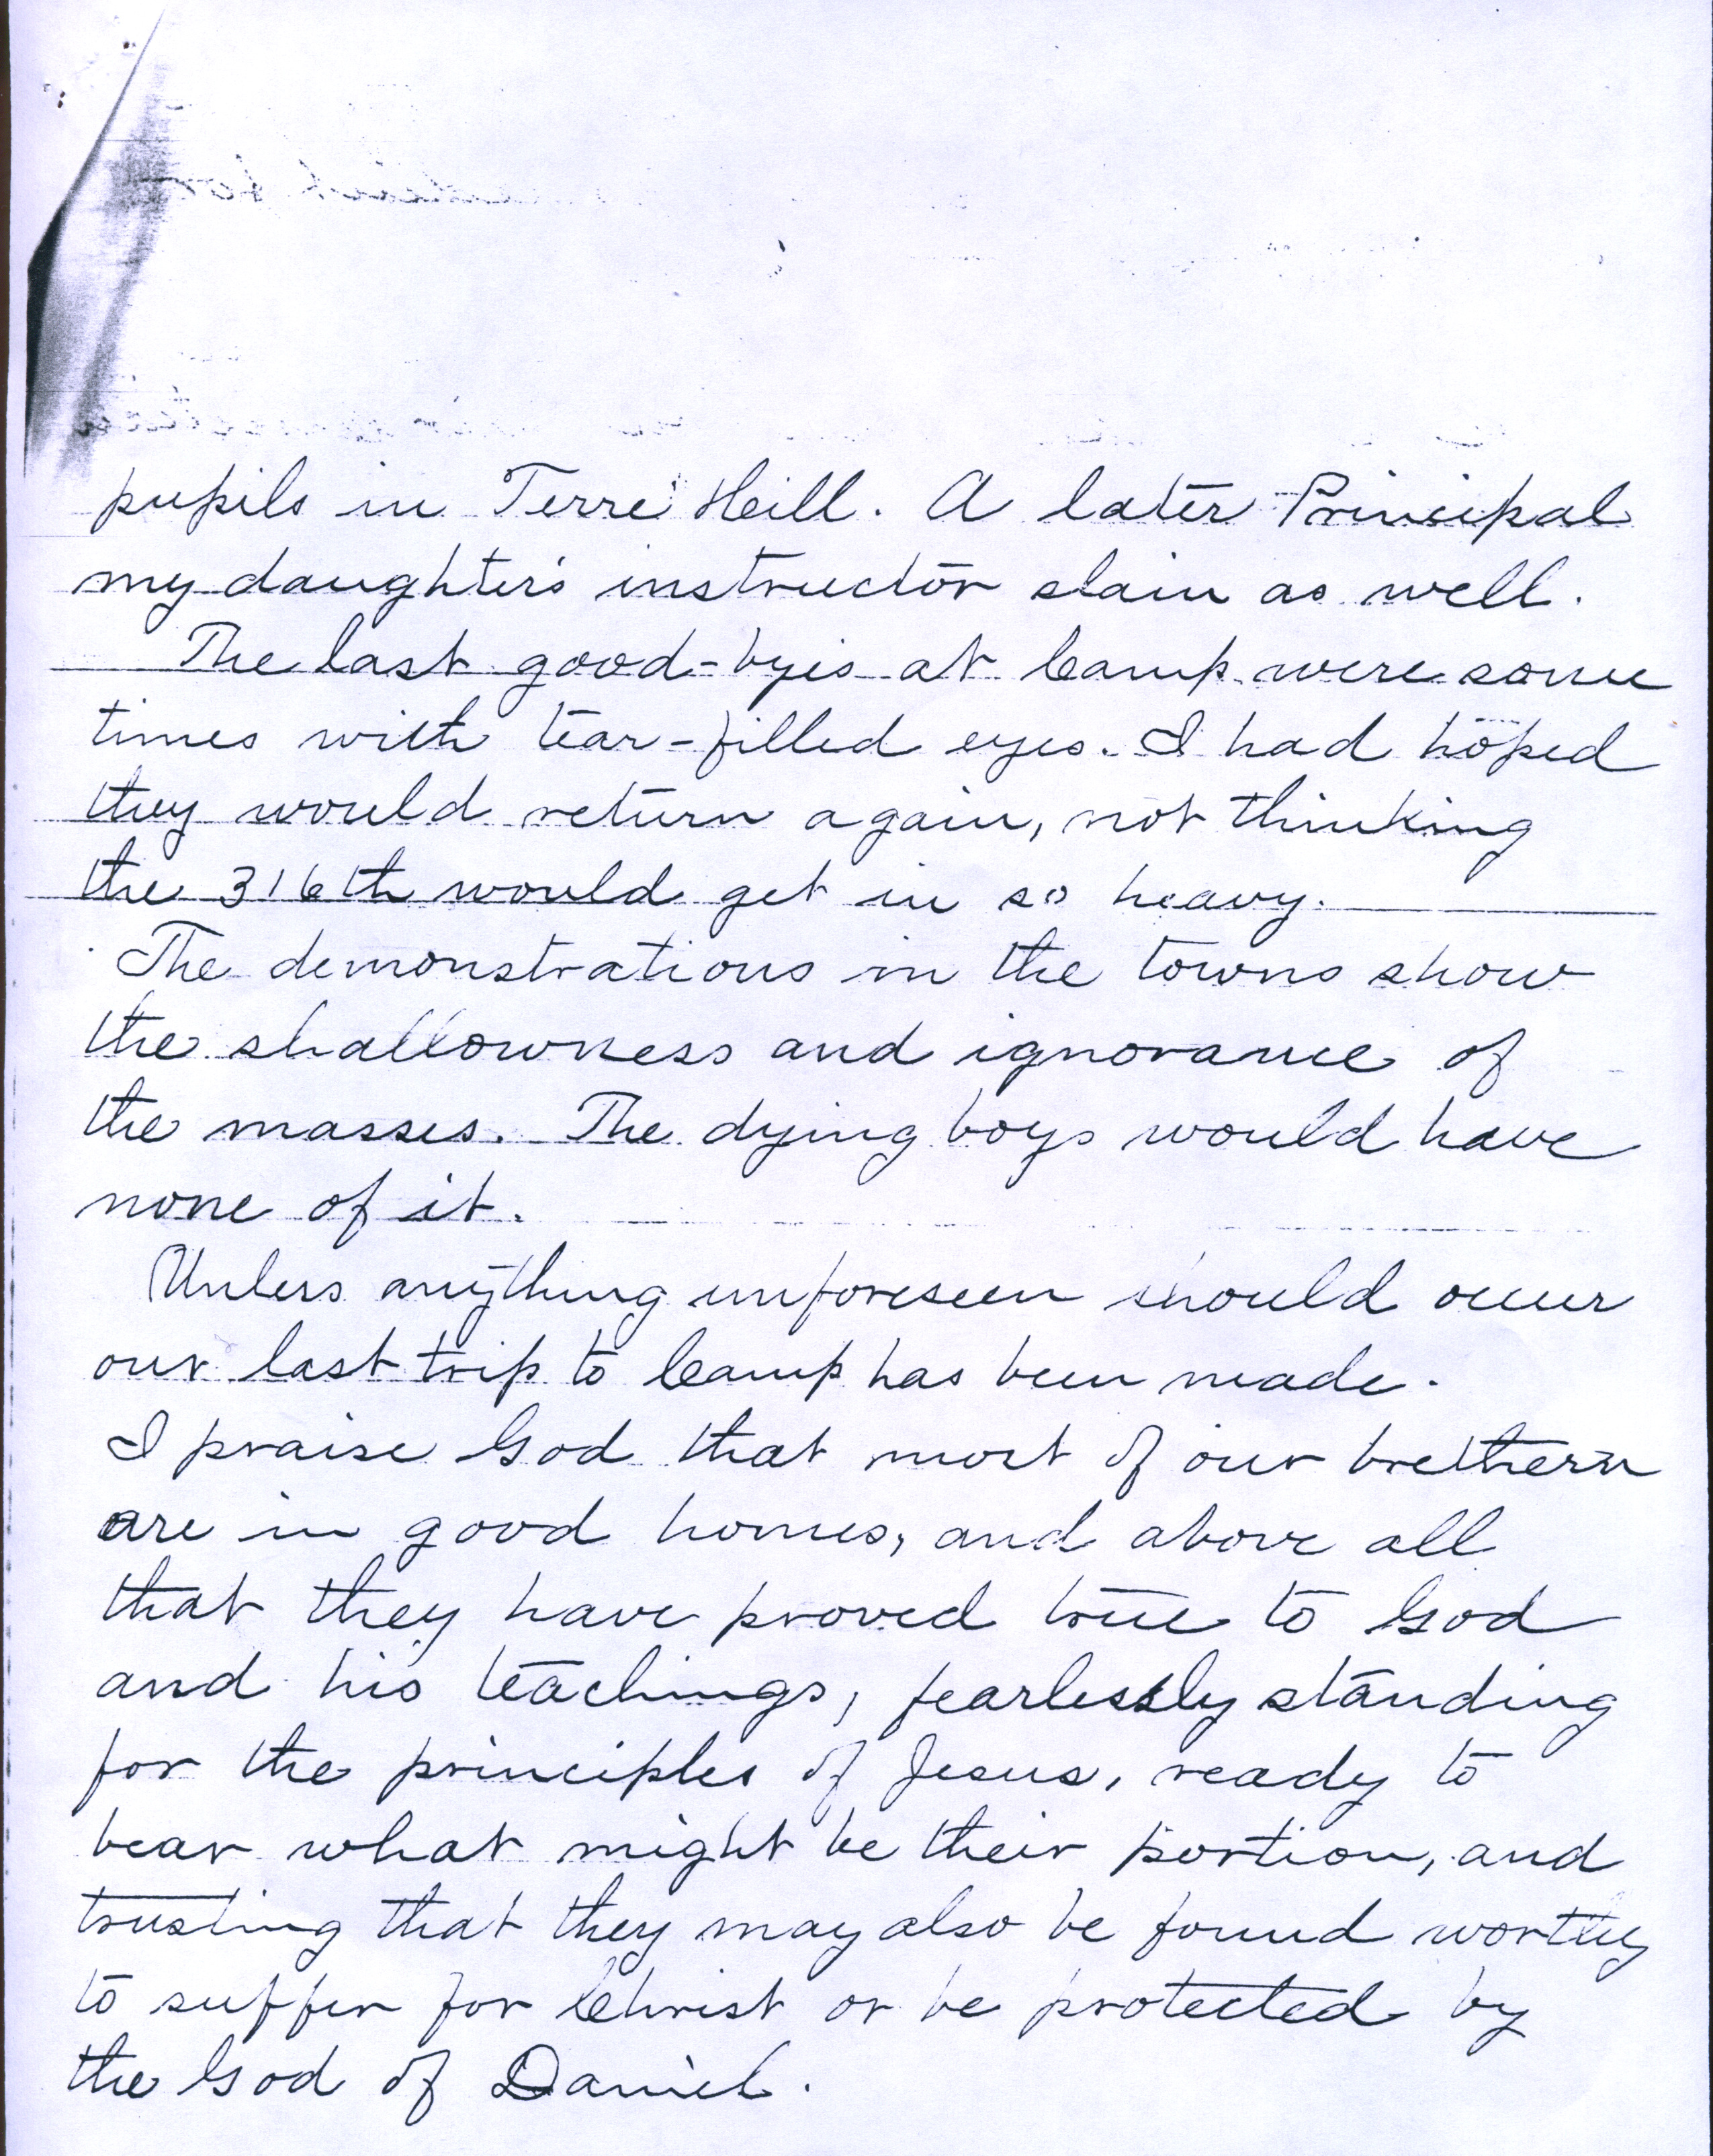 pupils in Terre Heill. A later Principal
my daughter's instructor slain as well.
The last good-byes at Camp were some
times with tear-filled eyes. I had hoped
they would return again, not thinking
the 316th would get in so heavy.
The demonstrations in the towns show
the shallowness and ignorance of
the masses. The dying boys would have
none of it.
Unless anything unforeseen should occur
our last trip to Camp has been made.
I praise God that most of our brethern
are in good homes, and above all
that they have proved true to God
and his teachings, fearlessly standing
for the principles of Jesus, ready to
bear what might be their portion, and
trusting that they may also be found worthy
to suffer for Christ or be protected by
the God of Daniel.